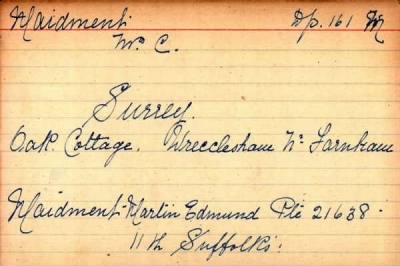 Maidment Dp. 161 M
Mr C.
Surrey.
Oak Cottage. Wrecclesham Nr Farnham
Maidment Martin Edmund Pte 21638.
11th Suffolks.